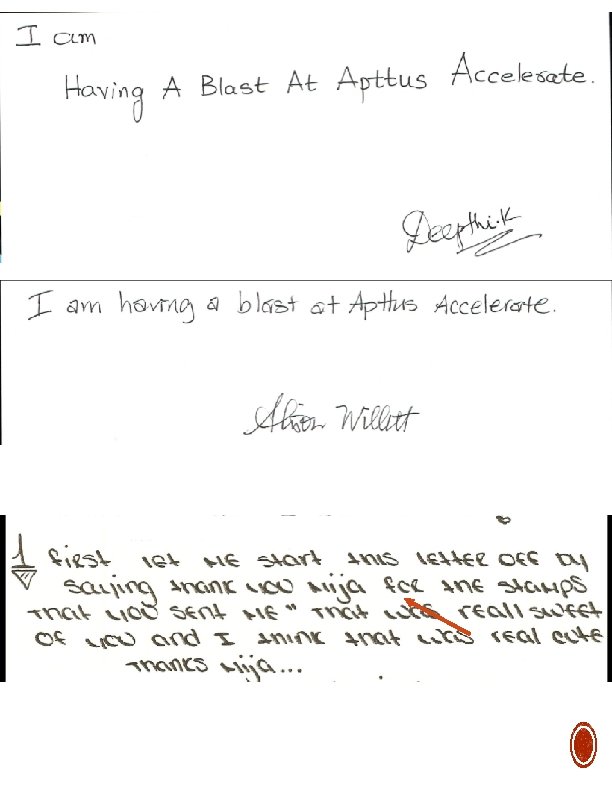 I am
Having A Blast At Apttus Accelerate.
Deepthi.K
I am having a blast at Apttus Accelerate.
Alison Willett
1 first let me start this letter off by
saying thank you Mija for the stamps
that you sent me" that was reall sweet
of you and I think that was real cute
thanks Mija...